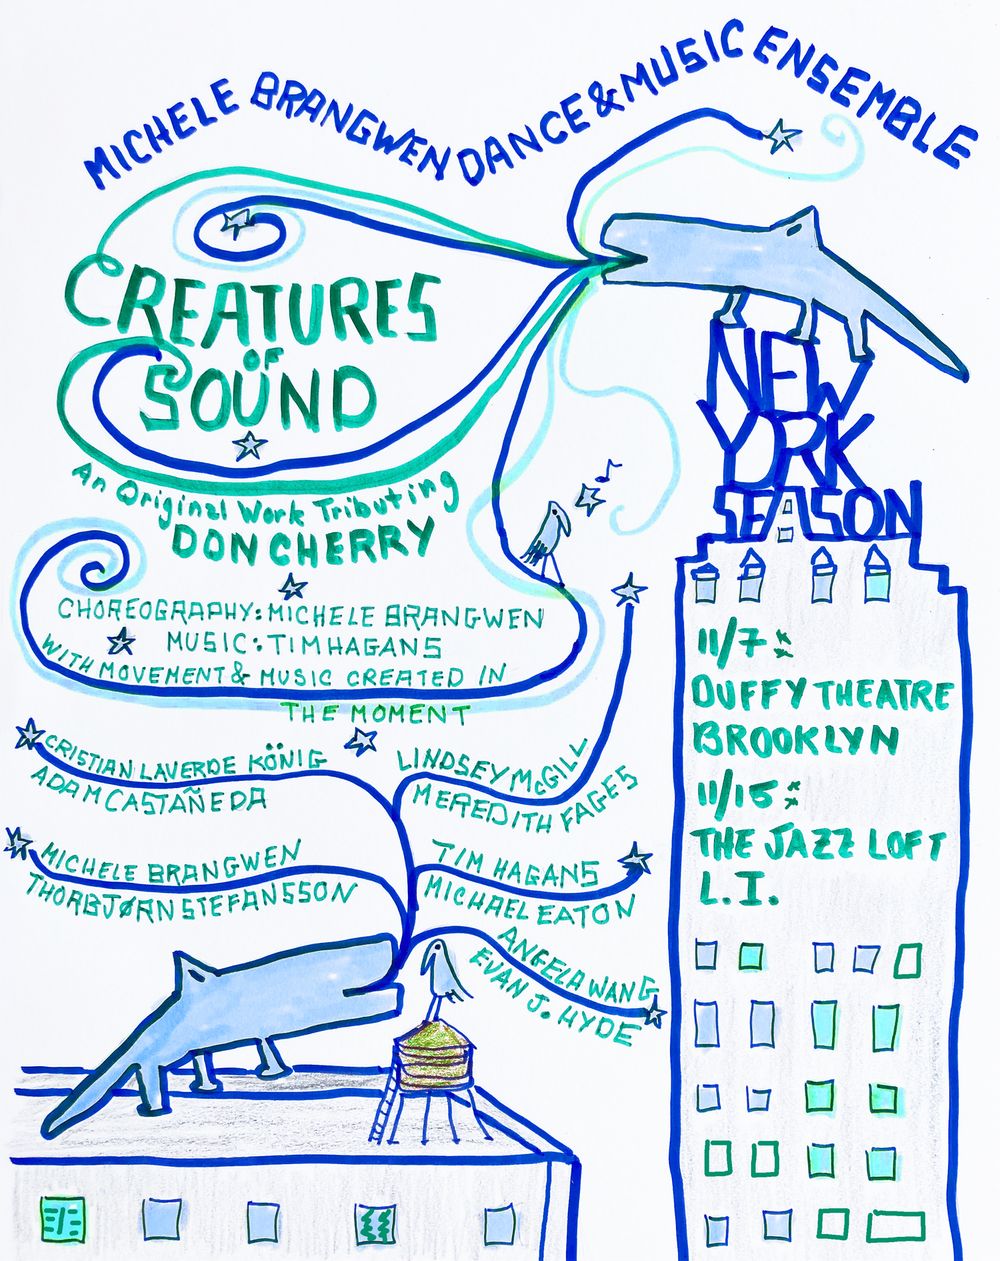 MICHELE BRANGWEN DANCE & MUSIC ENSEMBLE
CREATURES
OF
SOUND
An Original Work Tributing
DON CHERRY
CHOREOGRAPHY: MICHELE BRANGWEN
MUSIC: TIM HAGANS
WITH MOVEMENT & MUSIC CREATED IN
THE MOMENT
CRISTIAN LAVERDE KÖNIG
ADAM CASTAÑEDA
MICHELE BRANGWEN
THORBJØRN STEFANSSON
LINDSEY McGILL
MEREDITH FAGES
TIM HAGANS
MICHAEL EATON
ANGELA WANG
EVAN J. HYDE
NEW
YORK
SEASON
11/7:
DUFFY THEATRE
BROOKLYN
11/15:
THE JAZZ LOFT
L.I.